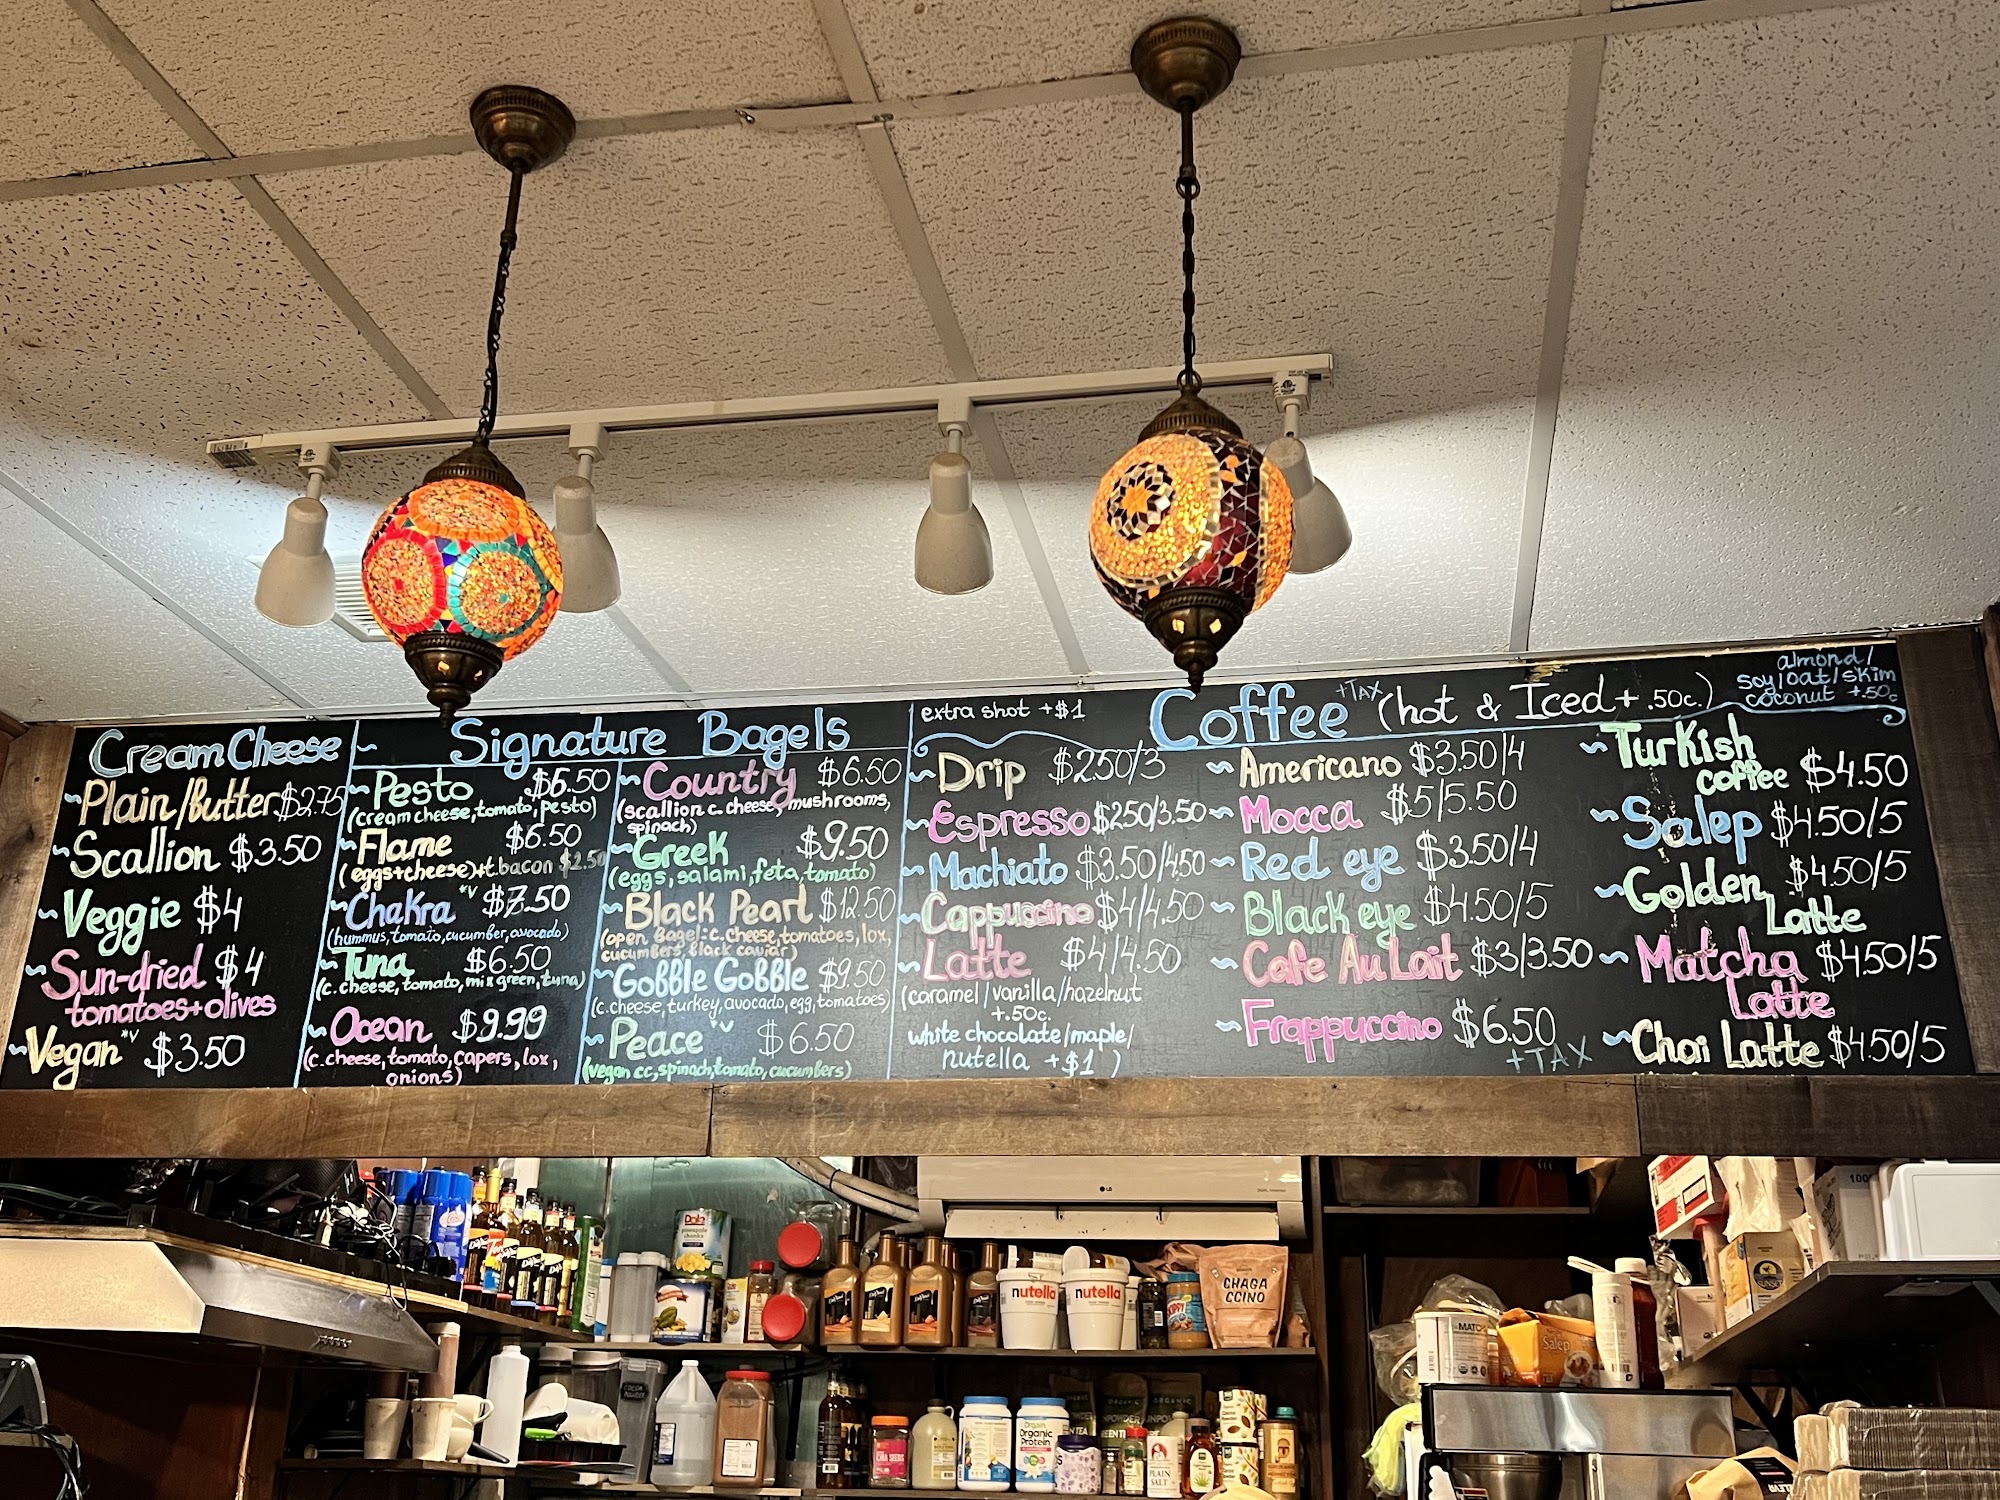 Cream Cheese
~Plain/butter $2.75
~Scallion $3.50
~Veggie $4
~Sun-dried $4
tomatoes+olives
~Vegan *v $3.50
~ Signature Bagels
~Pesto $6.50
(cream cheese, tomato, pesto)
~Flame $6.50
(eggs+cheese)+t.bacon $2.50
~Chakra *v $7.50
(hummus, tomato, cucumber, avocado)
~Tuna $6.50
(c.cheese, tomato, mix green, tuna)
~Ocean $9.99
(c.cheese, tomato, capers, lox,
onions)
~Country $6.50
(scallion c.cheese, mushrooms,
spinach)
~Greek $9.50
(eggs, salami, feta, tomato)
~Black Pearl $12.50
(open bagel: c.cheese, tomatoes, lox,
cucumbers, black caviar)
~Gobble Gobble $9.50
(c.cheese, turkey, avocado, egg, tomatoes)
~Peace *v $6.50
(vegan cc, spinach, tomato, cucumbers)
extra shot +$1
Coffee +TAX (hot & Iced + .50c.)
almond/
soy/oat/skim
coconut +.50c
~Drip $2.50/3
~Espresso $2.50/3.50
~Machiato $3.50/4.50
~Cappuccino $4/4.50
~Latte $4/4.50
(caramel/vanilla/hazelnut
+.50c.
white chocolate/maple/
nutella +$1 )
~Americano $3.50/4
~Mocca $5/5.50
~Red eye $3.50/4
~Black eye $4.50/5
~Cafe Au Lait $3/3.50
~Frappuccino $6.50
+TAX
~Turkish
coffee $4.50
~Salep $4.50/5
~Golden $4.50/5
Latte
~Matcha $4.50/5
Latte
~Chai Latte $4.50/5
LG
Dole
pineapple
chunks
nutella
nutella
CHAGA
CCINO
SKIPPY
MATCH
Salep
100%
COCOA
POWDER
CHIA SEEDS
Orgain
Organic
Protein
ORGANIC
PLAIN
SALT